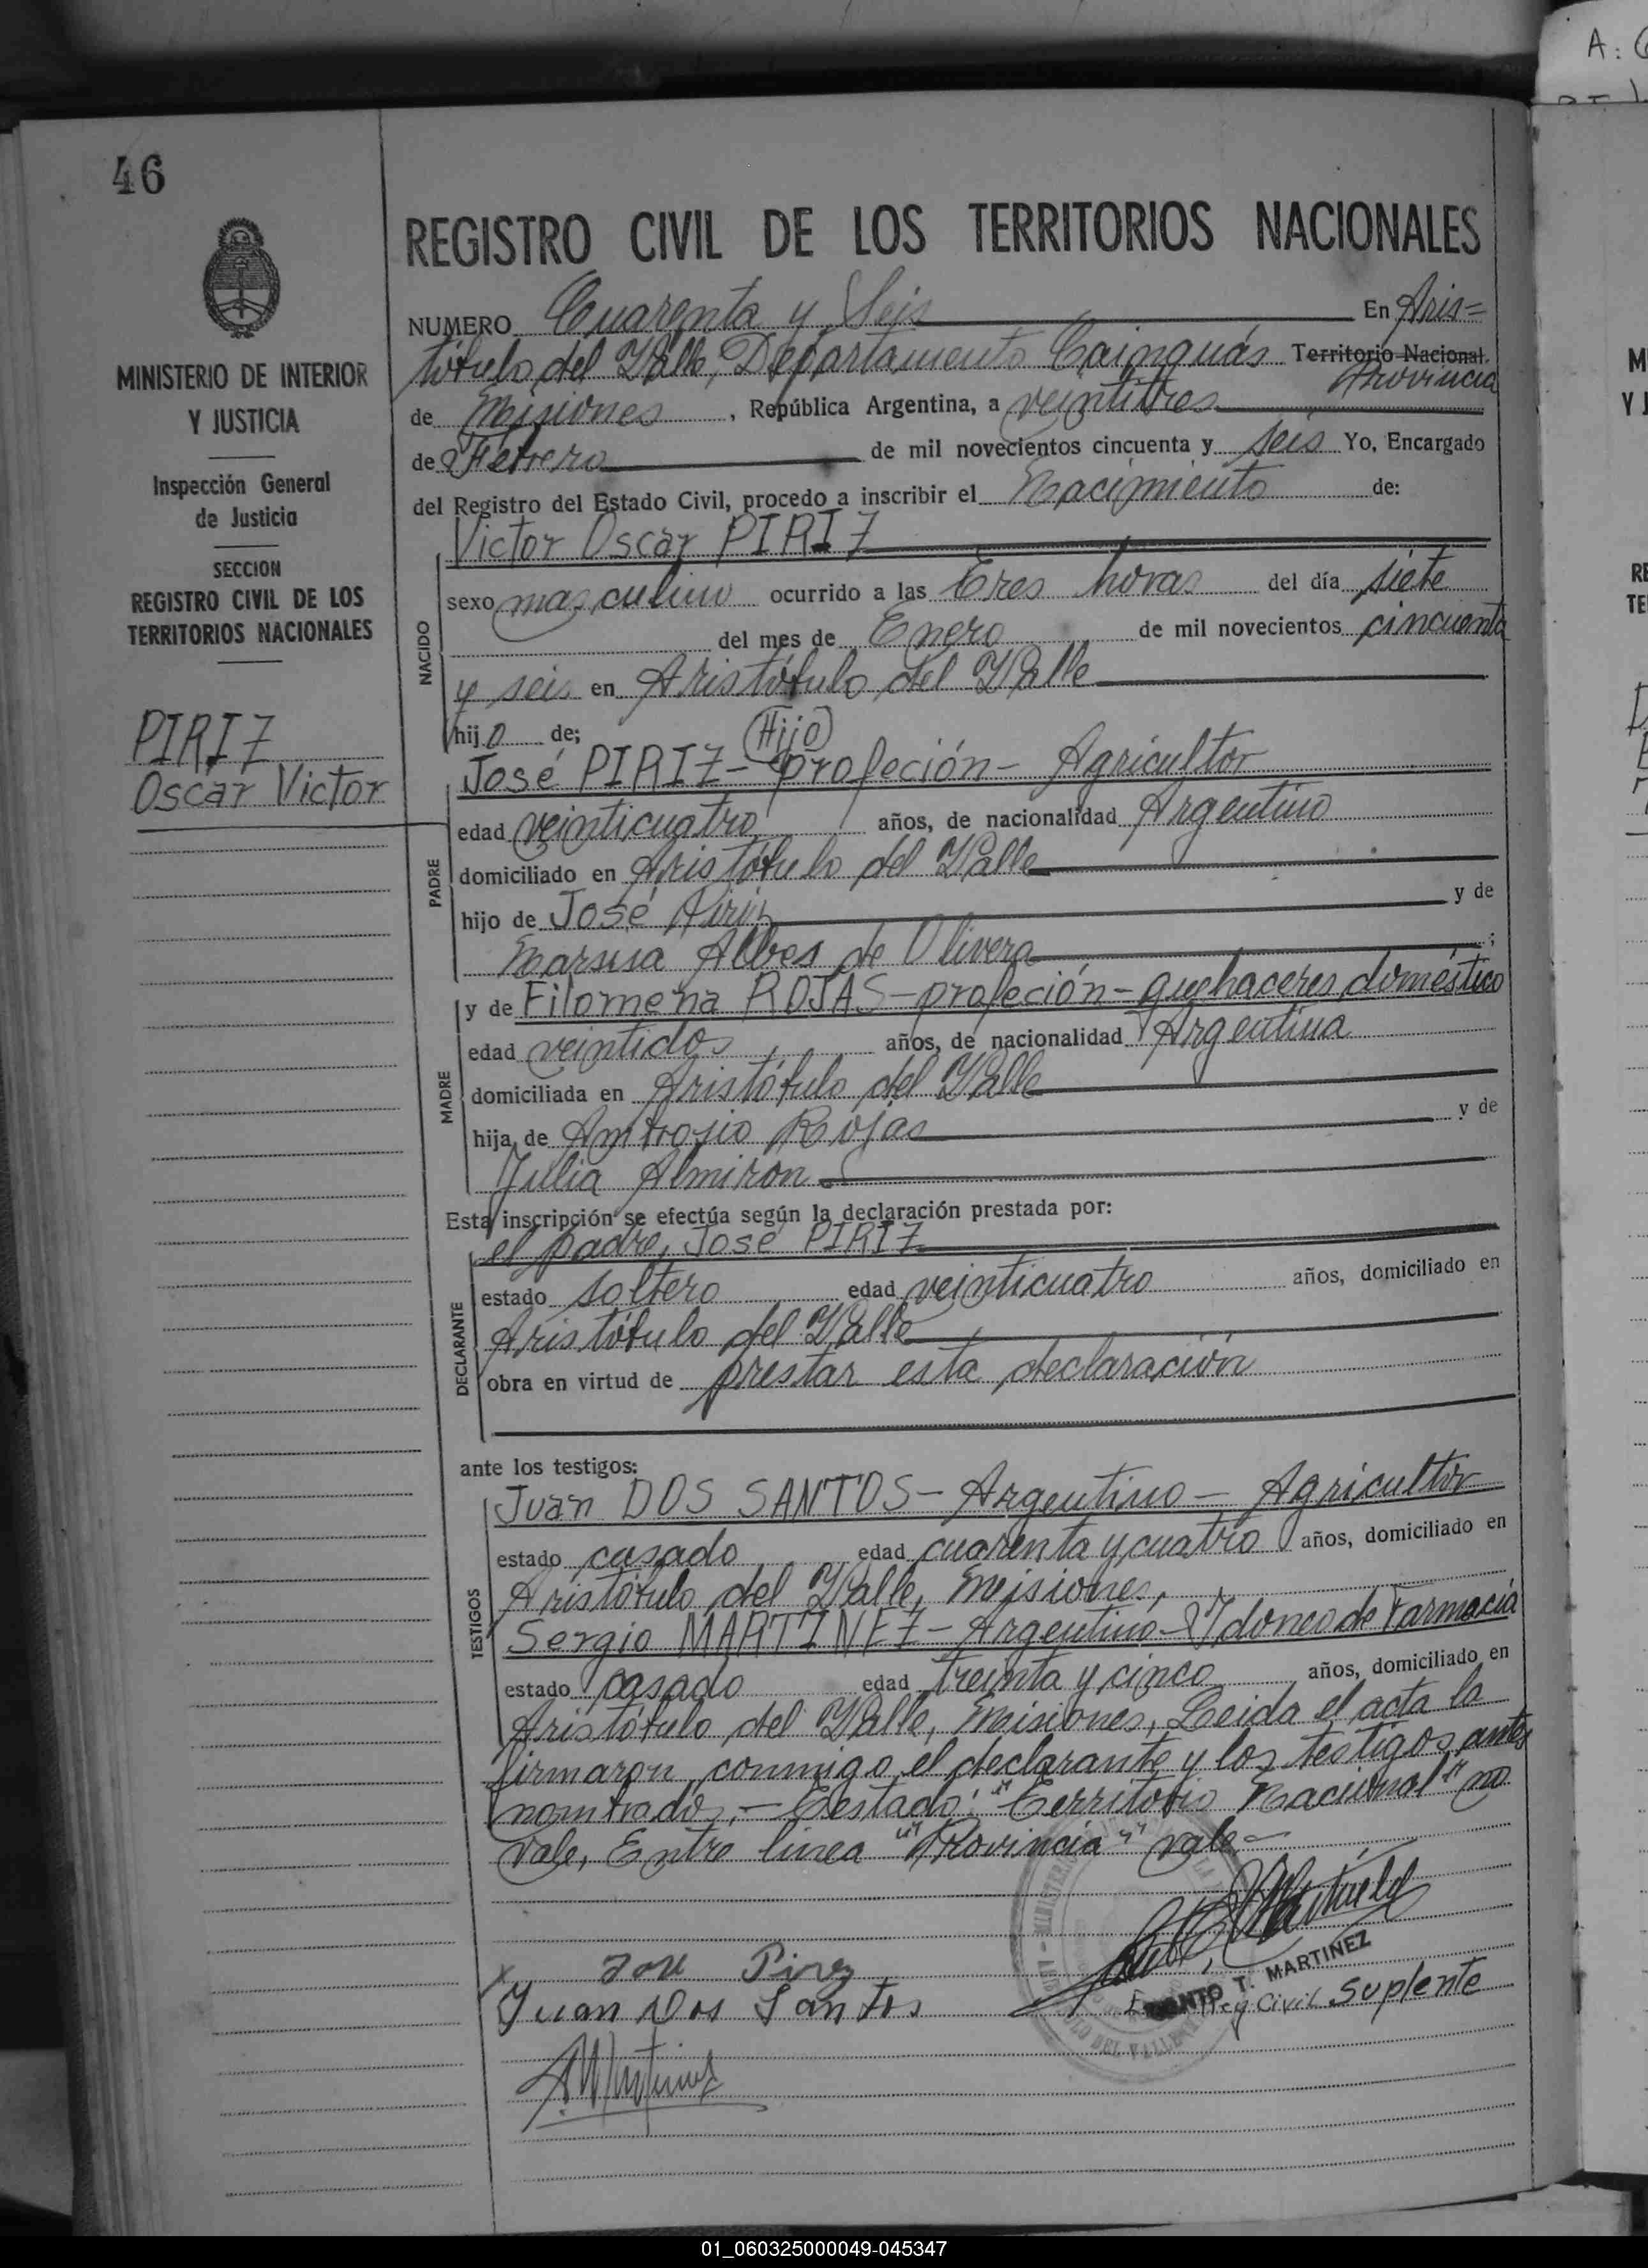 46
MINISTERIO DE INTERIOR
Y JUSTICIA
Inspección General
de Justicia
SECCION
REGISTRO CIVIL DE LOS
TERRITORIOS NACIONALES
PIRIZ
Oscar Victor
REGISTRO CIVIL DE LOS TERRITORIOS NACIONALES
NUMERO Cuarenta y Seis En Aris=
tóbulo del Valle, Departamento Cainguás Territorio Nacional
Provincia
de Misiones, República Argentina, a veintitres
de Febrero de mil novecientos cincuenta y seis Yo, Encargado
del Registro del Estado Civil, procedo a inscribir el Nacimiento de:
Victor Oscar PIRIZ
NACIDO
sexo masculino ocurrido a las Tres horas del día siete
del mes de Enero de mil novecientos cincuenta
y seis en Aristóbulo del Valle
hijo de; (Hijo)
José PIRIZ - profeción - Agricultor
PADRE
edad veinticuatro años, de nacionalidad Argentino
domiciliado en Aristóbulo del Valle
hijo de José Piriz y de
Albes de Olivera;
MADRE
y de Filomena ROJAS - profeción - quehaceres doméstico
edad veintidos años, de nacionalidad Argentina
domiciliada en Aristóbulo del Valle
hija de Ambrosio Rojas y de
Julia Almiron
Esta inscripción se efectúa según la declaración prestada por:
DECLARANTE
el padre, José PIRIZ
estado soltero edad veinticuatro años, domiciliado en
Aristóbulo del Valle
obra en virtud de prestar esta declaración
ante los testigos:
TESTIGOS
Juan DOS SANTOS - Argentino - Agricultor
estado casado edad cuarenta y cuatro años, domiciliado en
Aristóbulo del Valle, Misiones,
Sergio MARTINEZ - Argentino - Idoneo de Farmacia
estado casado edad treinta y cinco años, domiciliado en
Aristóbulo del Valle, Misiones, Leida el acta la
firmaron conmigo el declarante y los testigos antes
nombrados. - Testado: "Territorio Nacional" no
vale, Entre linea "Provincia" vale -
José Piriz
Juan Dos Santos
T. MARTINEZ
Reg Civil Suplente
DEL VALLE
01_060325000049-045347